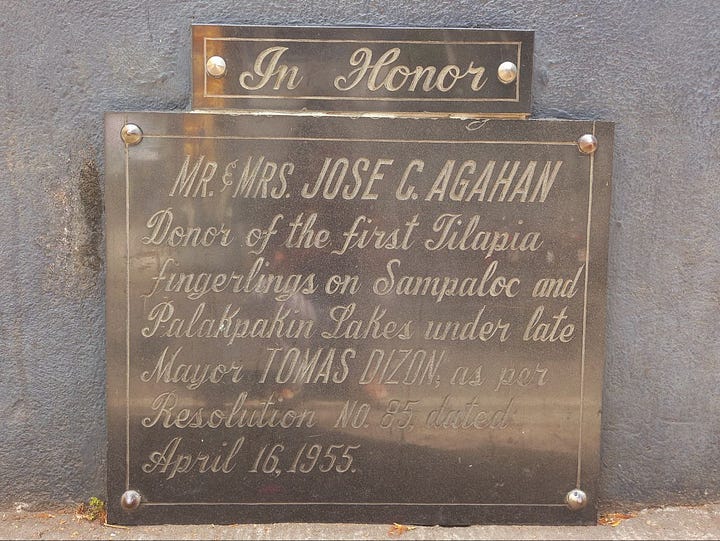 In Honor
MR. & MRS. JOSE C. AGAHAN
Donor of the first Tilapia
fingerlings on Sampaloc and
Palakpakin Lakes under late
Mayor TOMAS DIZON, as per
Resolution NO. 85, dated
April 16, 1955.